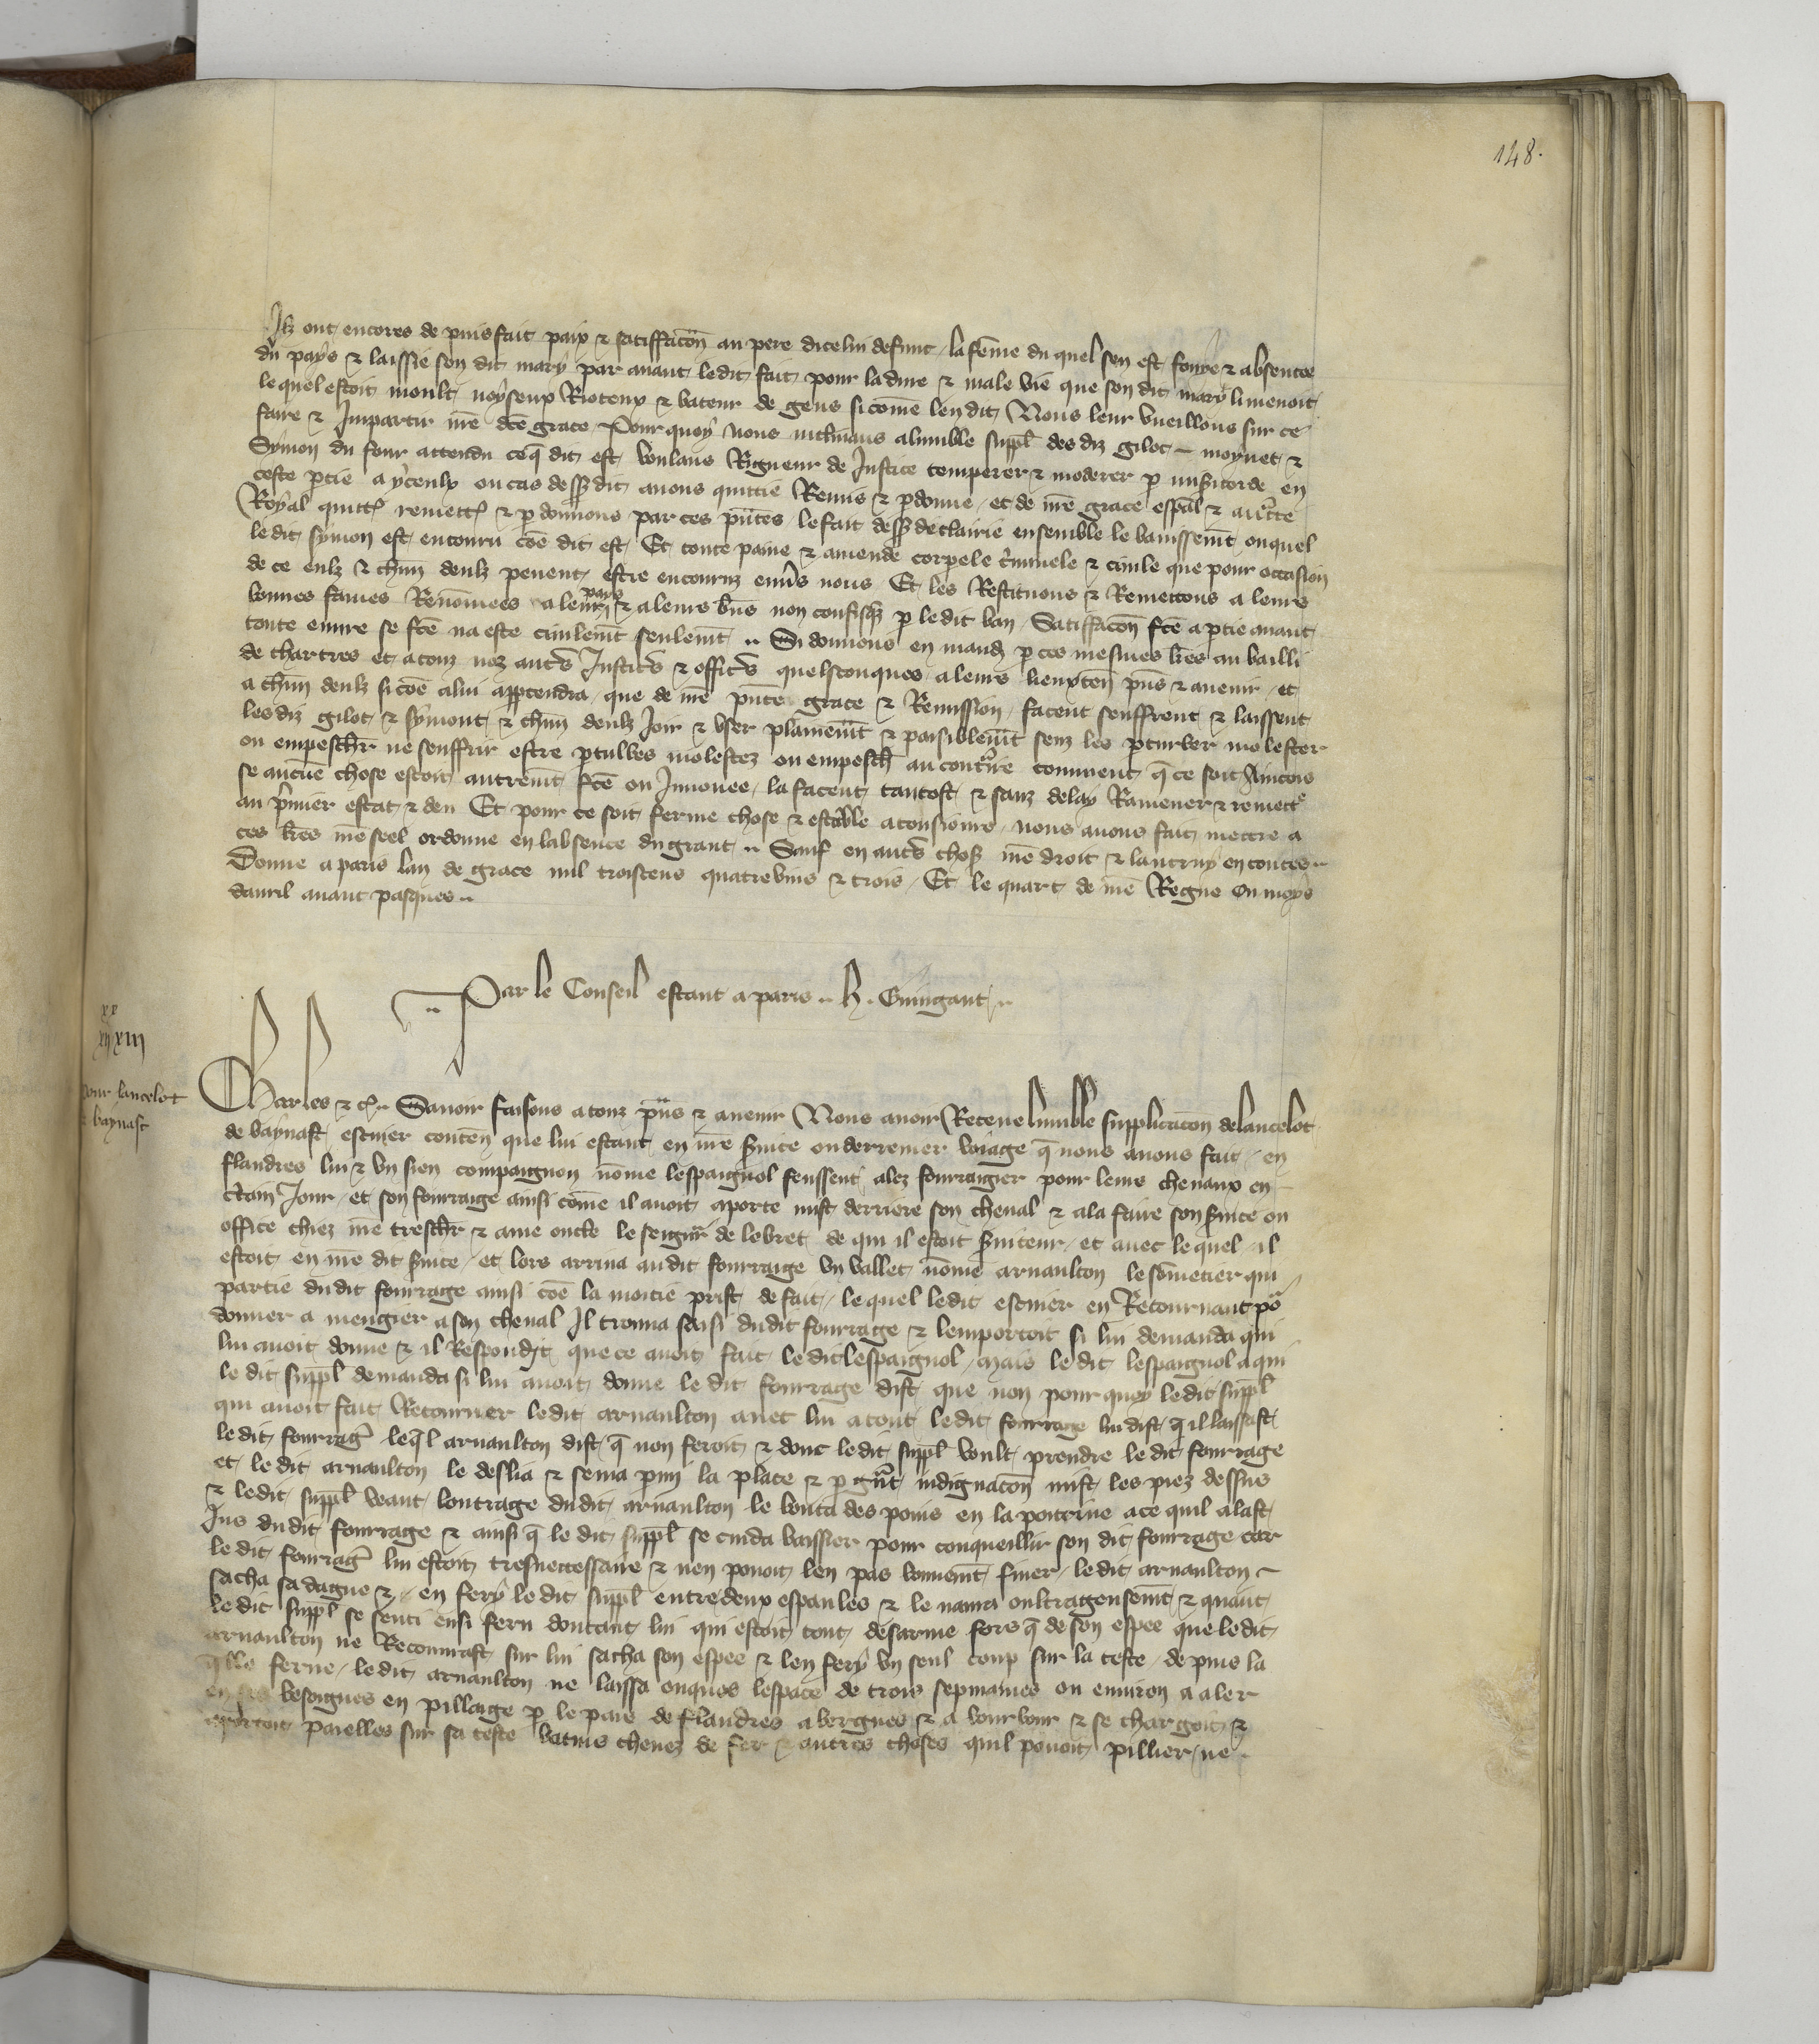 148.
Ilz ont encores de puis fait paix & satiffacōn au pere dicelui defunt / la fēme du quel sen est fouye & absentee
du pays & laissie son dit mary par auant le dit fait pour la dure & male vie que son dit mary li menoit
le quel estoit moult noyseux Rioteux & bateur de gens si cōme len dit Nous leur vueillons sur ce
faire & Impartir nr̄e dc̄e grace Pour quoy nous inclinans alumble suppl̄ des diz gilot moynet &
Symon du four attendu ceq̄ dit est voulans Rigueur de Justice temperer & moderer p misicorde en
ceste ptie a yceulx ou cas dessꝰ dit auons quittie Remis & pdonne / et de nr̄e grace esp̄al & auc̄te
Royal quittꝰ remettꝰ & pdonnons par ces pn̄tes le fait dessꝰ declairie ensemble le banissem̄t ou quel
le dit symon est encouru cōe dit est Et toute paine & amende corpele c̄minele & ciuile que pour occasion
de ce eulz & chūn deulz peuent estre encouruz enūs nous Et les Restituons & Remettons a leurs
bonnes fames Renōmees a leur pays & a leurs bn̄s non confisqz p le dit ban Satiffacōn fc̄e a ptie auant
toute euure se fc̄e na este ciuilem̄t seulem̄t .. Si donnons en mandꝭ p ces mesmes lr̄es au bailli
de chartres et a touz noz autr̄s Justicrs & officrs quelsconques a leurs lieuxten̄ pn̄s & auenir / et
a chūn deulz si cōe a lui apptendra / que de nr̄e pn̄te grace & Remission / facent seuffrent & laissent
les diz gilot & symont & chūn deulz Joir & vser plainem̄t & paisiblem̄t senz les pturber molester
ou empeschr̄ ne souffrir estre ptulbes molestez ou empesch̄ au contr̄ire comment q̄ ce soit Aincois
se aucūe chose estoit autrem̄t fc̄e ou Innouee / la facent tantost & sanz delay Ramener & remectre
au p̄mier estat & deu Et pour ce soit ferme chose & estable a tousiours / nous auons fait mettre a
ces lr̄es nr̄e seel ordonne en labsence du grant .. Sauf en autr̄s chosꝭ nr̄e droit & lautruy en toutes ..
Donne a paris lan de grace mil troiscens quatrevins & trois / Et le quart de nr̄e Regne Ou moys
dauril auant pasques ..
.. Par le Conseil estant a paris .. H. Guingant ..
pour lancelot
baynast
Charles &c̄ .. Sauoir faisons a touz pn̄s & auenir Nous auoir Receue lumble supplicacōn de lancelot
de baynast escuier conten̄ que lui estant en nr̄e suice ou derrenier voiage q̄ nous auons fait / en
flandres lui & vn sien compaignon nōme lespaignol feussent alez fourragier pour leurs cheuaux en
ctain Jour / et son fourraige ainsi cōme il auoit aporte mist derriere son cheual & ala faire son suice ou
office chiez nr̄e treschr̄ & ame oncle le seigneur de lebret de qui il estoit suiteur / et auec le quel il
estoit en nr̄e dit suice / et lors arriua au dit fourraige vn vallet nōme arnaulton le sōmetier qui
partie du dit fourrage ainsi cōe la moitie prist de fait / le quel le dit escuier en Retournant po
donner a mengier a son cheual Il trouua saisi du dit fourrage & lemportoit si lui demanda qui
lui auoit donne & il Respondit que ce auoit fait le dit lespaignol / mais le dit lespaignol a qui
le dit suppl̄ demanda si lui auoit donne le dit fourrage dist que non pour quoy le dit suppl̄
qui auoit fait Retourner le dit arnaulton auec lui a tout le dit fourrage lui dist q̄ il laissast
le dit fourragē leq̄l arnaulton dist q̄ non feroit & donc le dit suppl̄ voult prendre le dit fourrage
et le dit arnaulton le deslia & sema pmi la place & p gn̄t indignacōn mist les piez dessus
& le dit suppl̄ veant loutrage du dit arnaulton le bouta des poins en la poitrine a ce quil alast
Jus du dit fourrage & ainsi q̄ le dit suppl̄ se cuida baissier pour conqueillir son dit fourrage car
le dit fourragē lui estoit tresnecessaire & nen pouoit len pas bonnem̄t finer / le dit arnaulton
sacha sa dague & en fery le dit suppl̄ entredeux espaules & le naura oultrageusem̄t & quant
le dit suppl̄ se senti ensi feru doutant lui qui estoit tout desarme fors q̄ de son espee que le dit
arnaulton ne Recourust sur lui sacha son espee & len fery vn seul coup sur la teste / de puis la
q̄lle ferue / le dit arnaulton ne laissa onques lespace de trois sepmaines ou enuiron a aler
besoignes en pillaige p le pais de flandres a bergues & a bourbour & se chargoit &
aportoit paielles sur sa teste batuis chenez de fer & autres choses quil pouoit pillier / ne